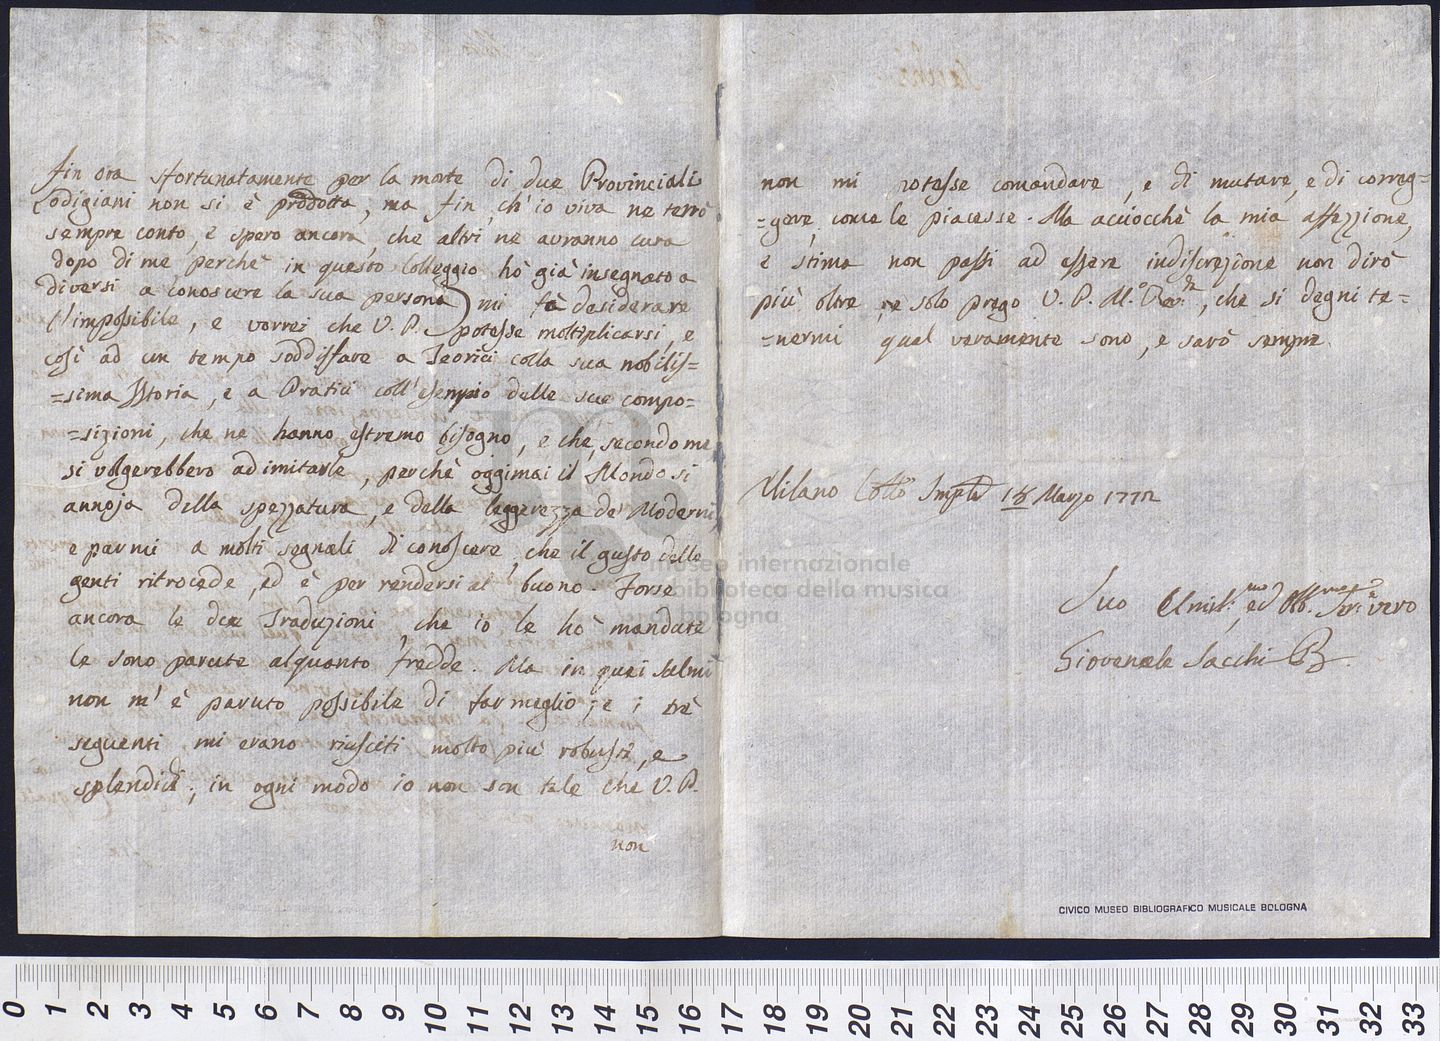 fin ora sfortunatamente per la morte di due Provinciali
Lodigiani non si è prodotta, ma fin, ch'io viva ne terrò
sempre conto, e spero ancora, che altri ne avranno cura
dopo di me, perchè in questo Colleggio hò già insegnato a
diversi a conoscere la sua persona) mi fà desiderare
l'impossibile, e vorrei che V. P. potesse moltiplicarsi, e
così ad un tempo soddisfare a Teorici colla sua nobilis=
=sima Istoria, e a Pratici coll'esempio delle sue compo=
=sizioni, che ne hanno estremo bisogno, e che, secondo me
si volgerebbero ad imitarle, perchè oggimai il Mondo si
annoja della spezzatura, e della leggerezza de' Moderni,
e parmi a molti segnali di conoscere, che il gusto delle
genti ritrocede, ed è per rendersi al buono. Forse
ancora le due Traduzioni, che io le hò mandate
le sono parute alquanto fredde. Ma in quei Salmi
non m'è paruto possibile di far meglio; e i trè
seguenti mi erano riusciti molto più robusti, e
splendidi; in ogni modo io non son tale che V. P.
non
non mi potesse comandare, e di mutare, e di correg=
=gere, come le piacesse. Ma acciocchè la mia affezzione,
e stima non passi ad essere indiscrezione non dirò
più oltre, e solo prego V. P. M.o Rev.da, che si degni te=
=nermi qual veramente sono, e sarò sempre.
Milano Collo Imple 18 Marzo 1772
Suo Umil.mo, ed Obb.mo Ser.e vero
Giovenale Sacchi B.
museo internazionale
e biblioteca della musica
di bologna
CIVICO MUSEO BIBLIOGRAFICO MUSICALE BOLOGNA
0 1 2 3 4 5 6 7 8 9 10 11 12 13 14 15 16 17 18 19 20 21 22 23 24 25 26 27 28 29 30 31 32 33